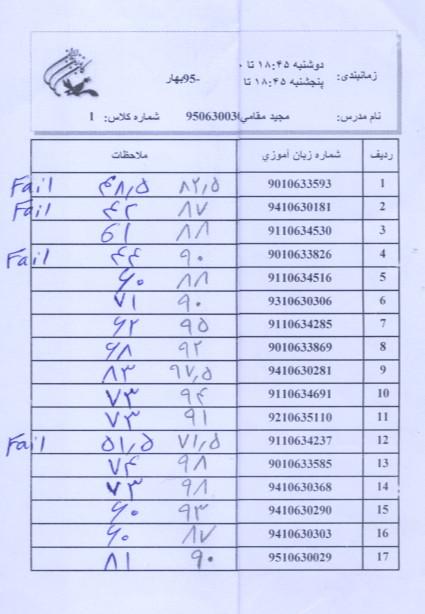 زمانبندی: دوشنبه ۱۸:۴۵ تا
پنجشنبه ۱۸:۴۵ تا
-95بهار
نام مدرس: مجید مقامي 95063003 شماره کلاس: 1
ردیف شماره زبان آموزي ملاحظات
1 9010633593 ۸۲,۵ ۴۸,۵ Fail
2 9410630181 ۸۷ ۴۲ Fail
3 9110634530 ۸۸ 61
4 9010633826 ۹۰ ۴۴ Fail
5 9110634516 ۸۸ ۶۰
6 9310630306 ۹۰ ۷۱
7 9110634285 ۹۵ ۶۲
8 9010633869 ۹۲ ۶۸
9 9410630281 ۹۷,۵ ۸۳
10 9110634691 ۹۴ ۷۳
11 9210635110 ۹۱ ۷۳
12 9110634237 ۷۱,۵ ۵۱,۵ Fail
13 9010633585 ۹۸ ۷۴
14 9410630368 ۹۸ ۷۳
15 9410630290 ۹۳ ۶۰
16 9410630303 ۸۷ ۶۰
17 9510630029 ۹۰ ۸۱